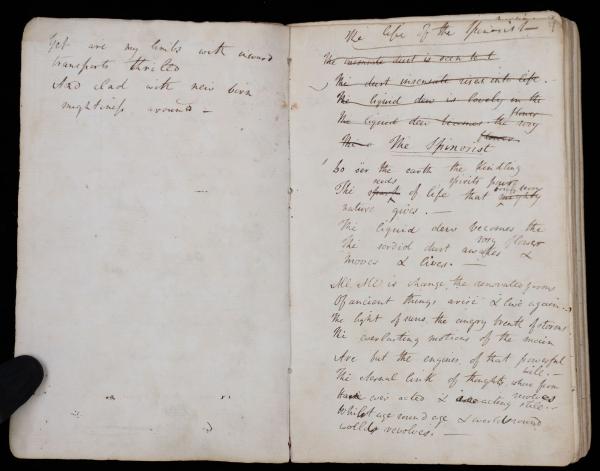 Yet are my limbs with inward
transports thriled
And clad with new born
mightiness around —
The life of the Spinosist —
The insensate dust is seen to l
The dust insensate rises into life
The liquid dew is lovely in the
flower
The liquid dew becomes the rosy
flower
The Spinosist
Lo o'er the earth the kindling
spirits pour
The spark seeds of life that mighty
nature gives. —
The liquid dew becomes the
rosy flower
The sordid dust awakes &
moves & lives. —
All, All is change, the renovated forms
Of ancient things arise & live again.
The light of suns the angry breath of storms
The everlasting motions of the main
Are but the engines of that powerful
will. —
The eternal link of thoughts where form
resolves
Have ever acted & are acting still. —
Whilst age round age & worlds round
worlds revolves. —